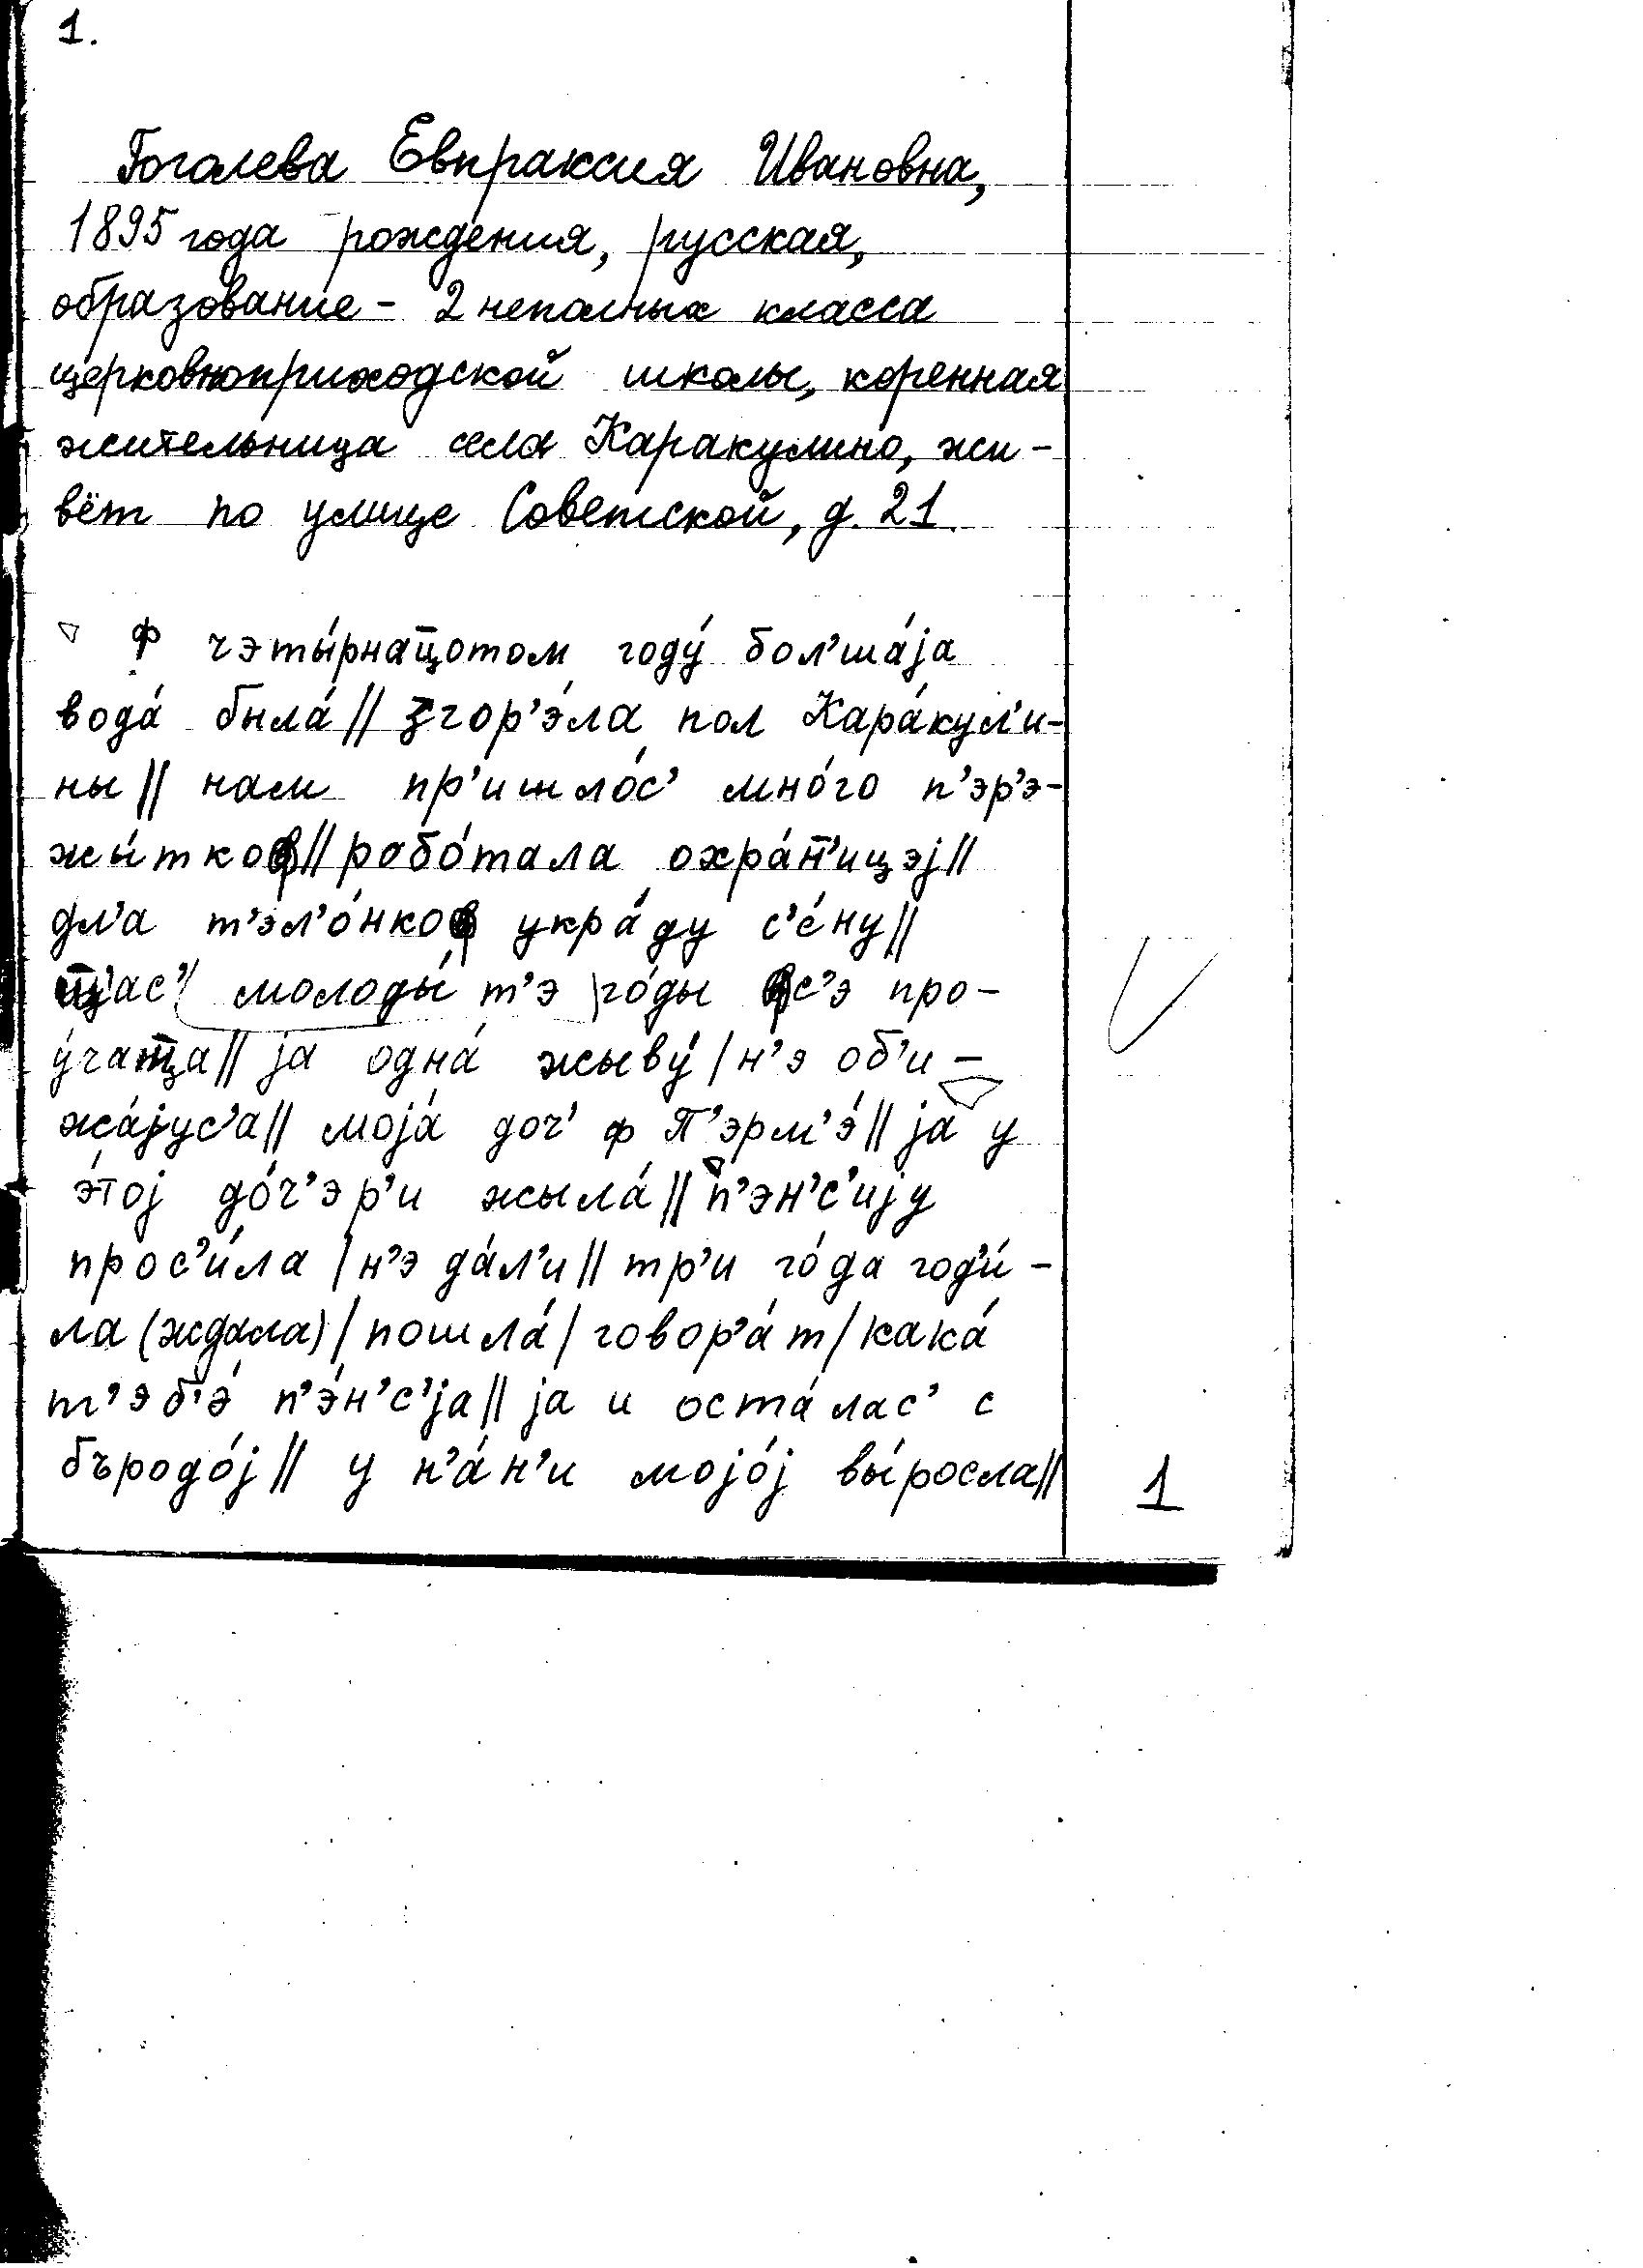 1.
Гоголева Евпраксия Ивановна,
1895 года рождения, русская,
образование – 2 неполных класса
церковноприходской школы, коренная
жительница села Каракулино, жи-
вёт по улице Советской, д. 21.
Ф чэты́рнац̄отом году́ бол’ша́jа
вода́ была́ // згор’э́ла пол Кара́кул’и-
ны // нам пр’ишло́с’ мно́го п’эр’э-
жы́ткоф // робо́тала охра́н̄’ицэj //
дл’а т’эл’о́нкоф укра́ду с’е́ну //
молоды́ т’э го́ды фс’э про-
у́чац̄а // jа одна́ жыву́ / н’э об’и-
жа́jус’а // моjа́ доч’ ф П’эрм’э́ // jа у
э́тоj до́ч’эр’и жыла́ // п’э́н’с’иjу
прос’и́ла / н’э да́л’и // тр’и го́да год’и́-
ла (ждала) / пошла́ / говор’а́т / кака́
т’эб’э́ п’э́н’с’jа // jа и оста́лас’ с
бъродо́j // у н’а́н’и моjо́j вы́росла //
1